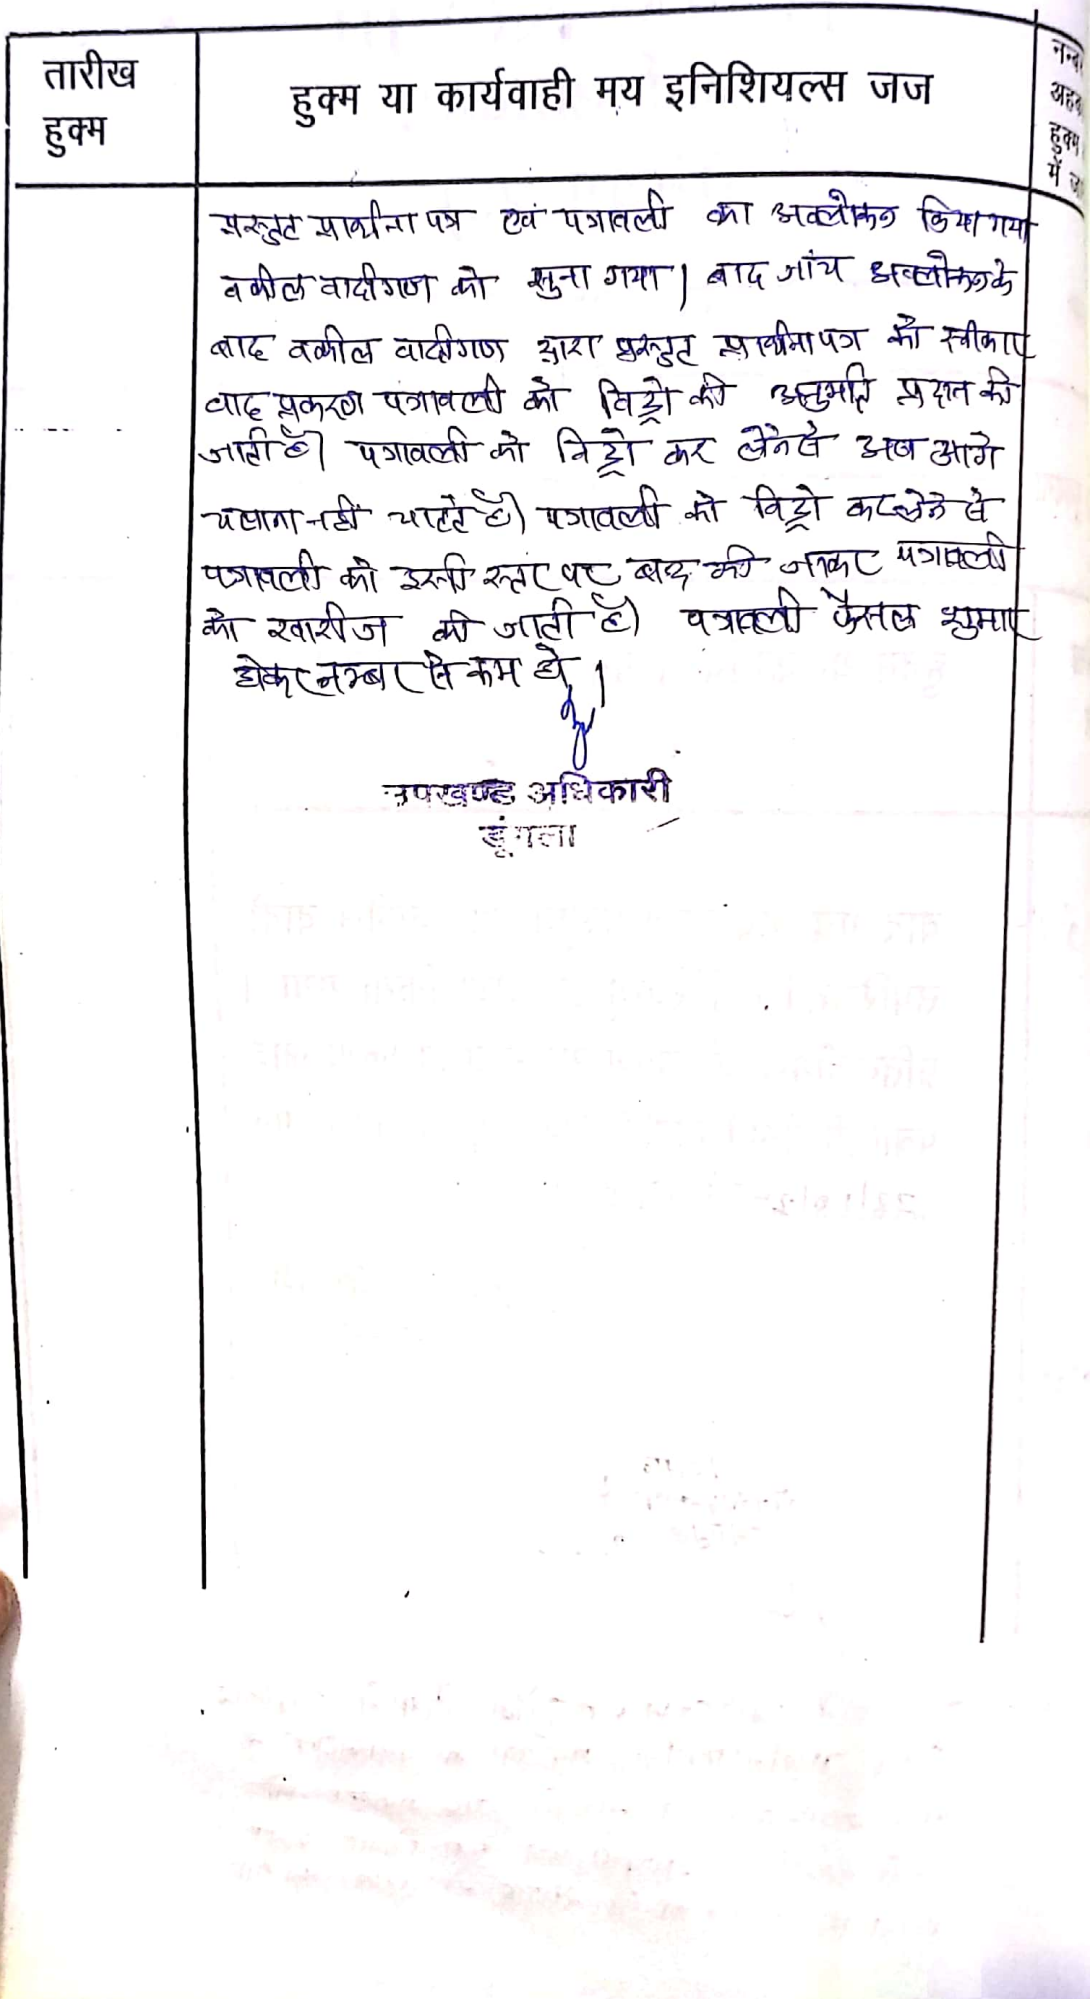 तारीख
हुक्म
हुक्म या कार्यवाही मय इनिशियल्स जज
हुक्म
में
प्रस्तुत प्रार्थना पत्र एवं पत्रावली का अवलोकन किया गया
वकील वादीगण को सुना गया। बाद जांच अवलोकन के
बाद वकील वादीगण द्वारा प्रस्तुत प्रार्थना पत्र को स्वीकार
वाद प्रकरण पत्रावली को विड्रो की अनुमति प्रदान की
जाती है। पत्रावली को विड्रो कर लेने से अब आगे
चलाना नही चाहते है। पत्रावली को विड्रो कर लेने से
पत्रावली को इसी स्तर पर बाद की जाकर पत्रावली
को खारीज की जाती है। पत्रावली फैसल शुमार
होकर नम्बर से कम हो।
उपखण्ड अधिकारी
डूंगला